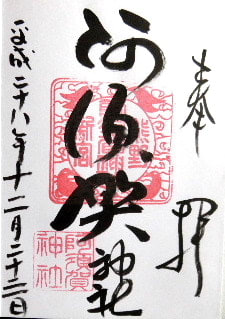 奉拝
阿須賀神社
平成二十八年十二月二十三日
熊野
新宮
阿須賀
神社